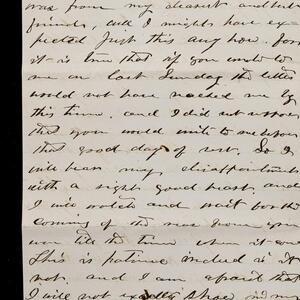 was from my dearest and best
friends, and I might have ex-
pected just this any how. for
it is true that if you wrote to
me on last Sunday the letter
would not have reached me by
this time, and I did not suppose
that you would write to me before
that good day of rest. So I
will bear my disappointment
with a right good heart, and
I will watch and wait for the
coming of the one from you
now till the time when it
This is patience indeed is it
not, and I am afraid that
I will not exactly